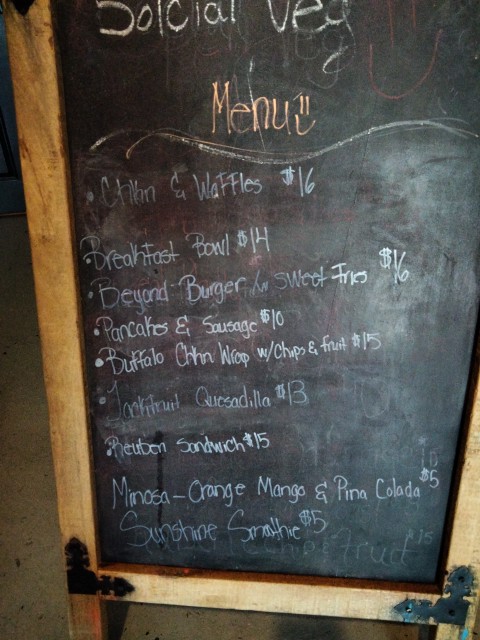 Solcial Veg
Menu
• Chkn & Waffles $16
Breakfast Bowl $14
• Beyond Burger w/ Sweet Fries $16
• Pancakes & Sausage $10
• Buffalo Chkn Wrap w/Chips & fruit $15
• Jackfruit Quesadilla $13
• Reuben Sandwich $15
Mimosa - Orange Mango & Pina Colada $5
Sunshine Smothie $5
chips & Fruit $15